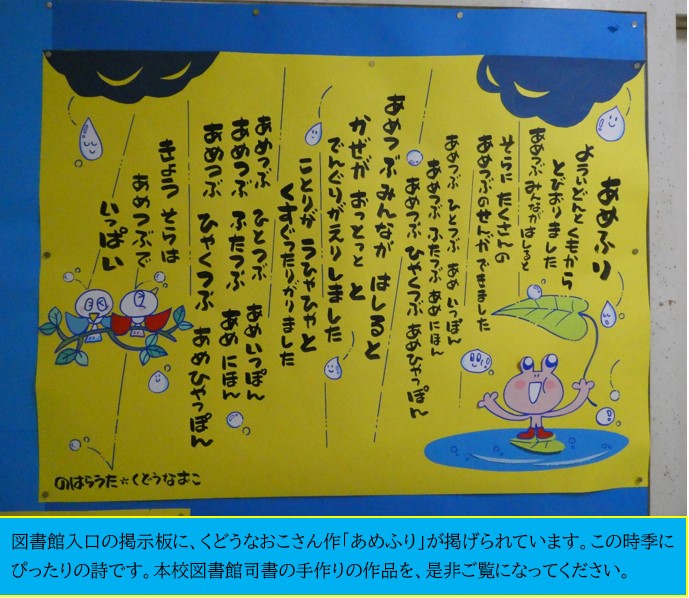 あめふり
よういどんとくもから
とびおりました
あめつぶ みんながはしると
そらに たくさんの
あめつぶのせんが できました
あめつぶ ひとつぶ あめ いっぽん
あめつぶ ふたつぶ あめ にほん
あめつぶ ひゃくつぶ あめひゃっぽん
あめつぶ みんなが はしると
かぜが おっとっと と
でんぐりがえりしました
ことりが うひゃひゃと
くすぐったがりました
あめつぶ ひとつぶ あめいっぽん
あめつぶ ふたつぶ あめ にほん
あめつぶ ひゃくつぶ あめひゃっぽん
きょう そらは
あめつぶで
いっぱい
のはらうた☆くどうなおこ
図書館入口の掲示板に、くどうなおこさん作「あめふり」が掲げられています。この時季に
ぴったりの詩です。本校図書館司書の手作りの作品を、是非ご覧になってください。